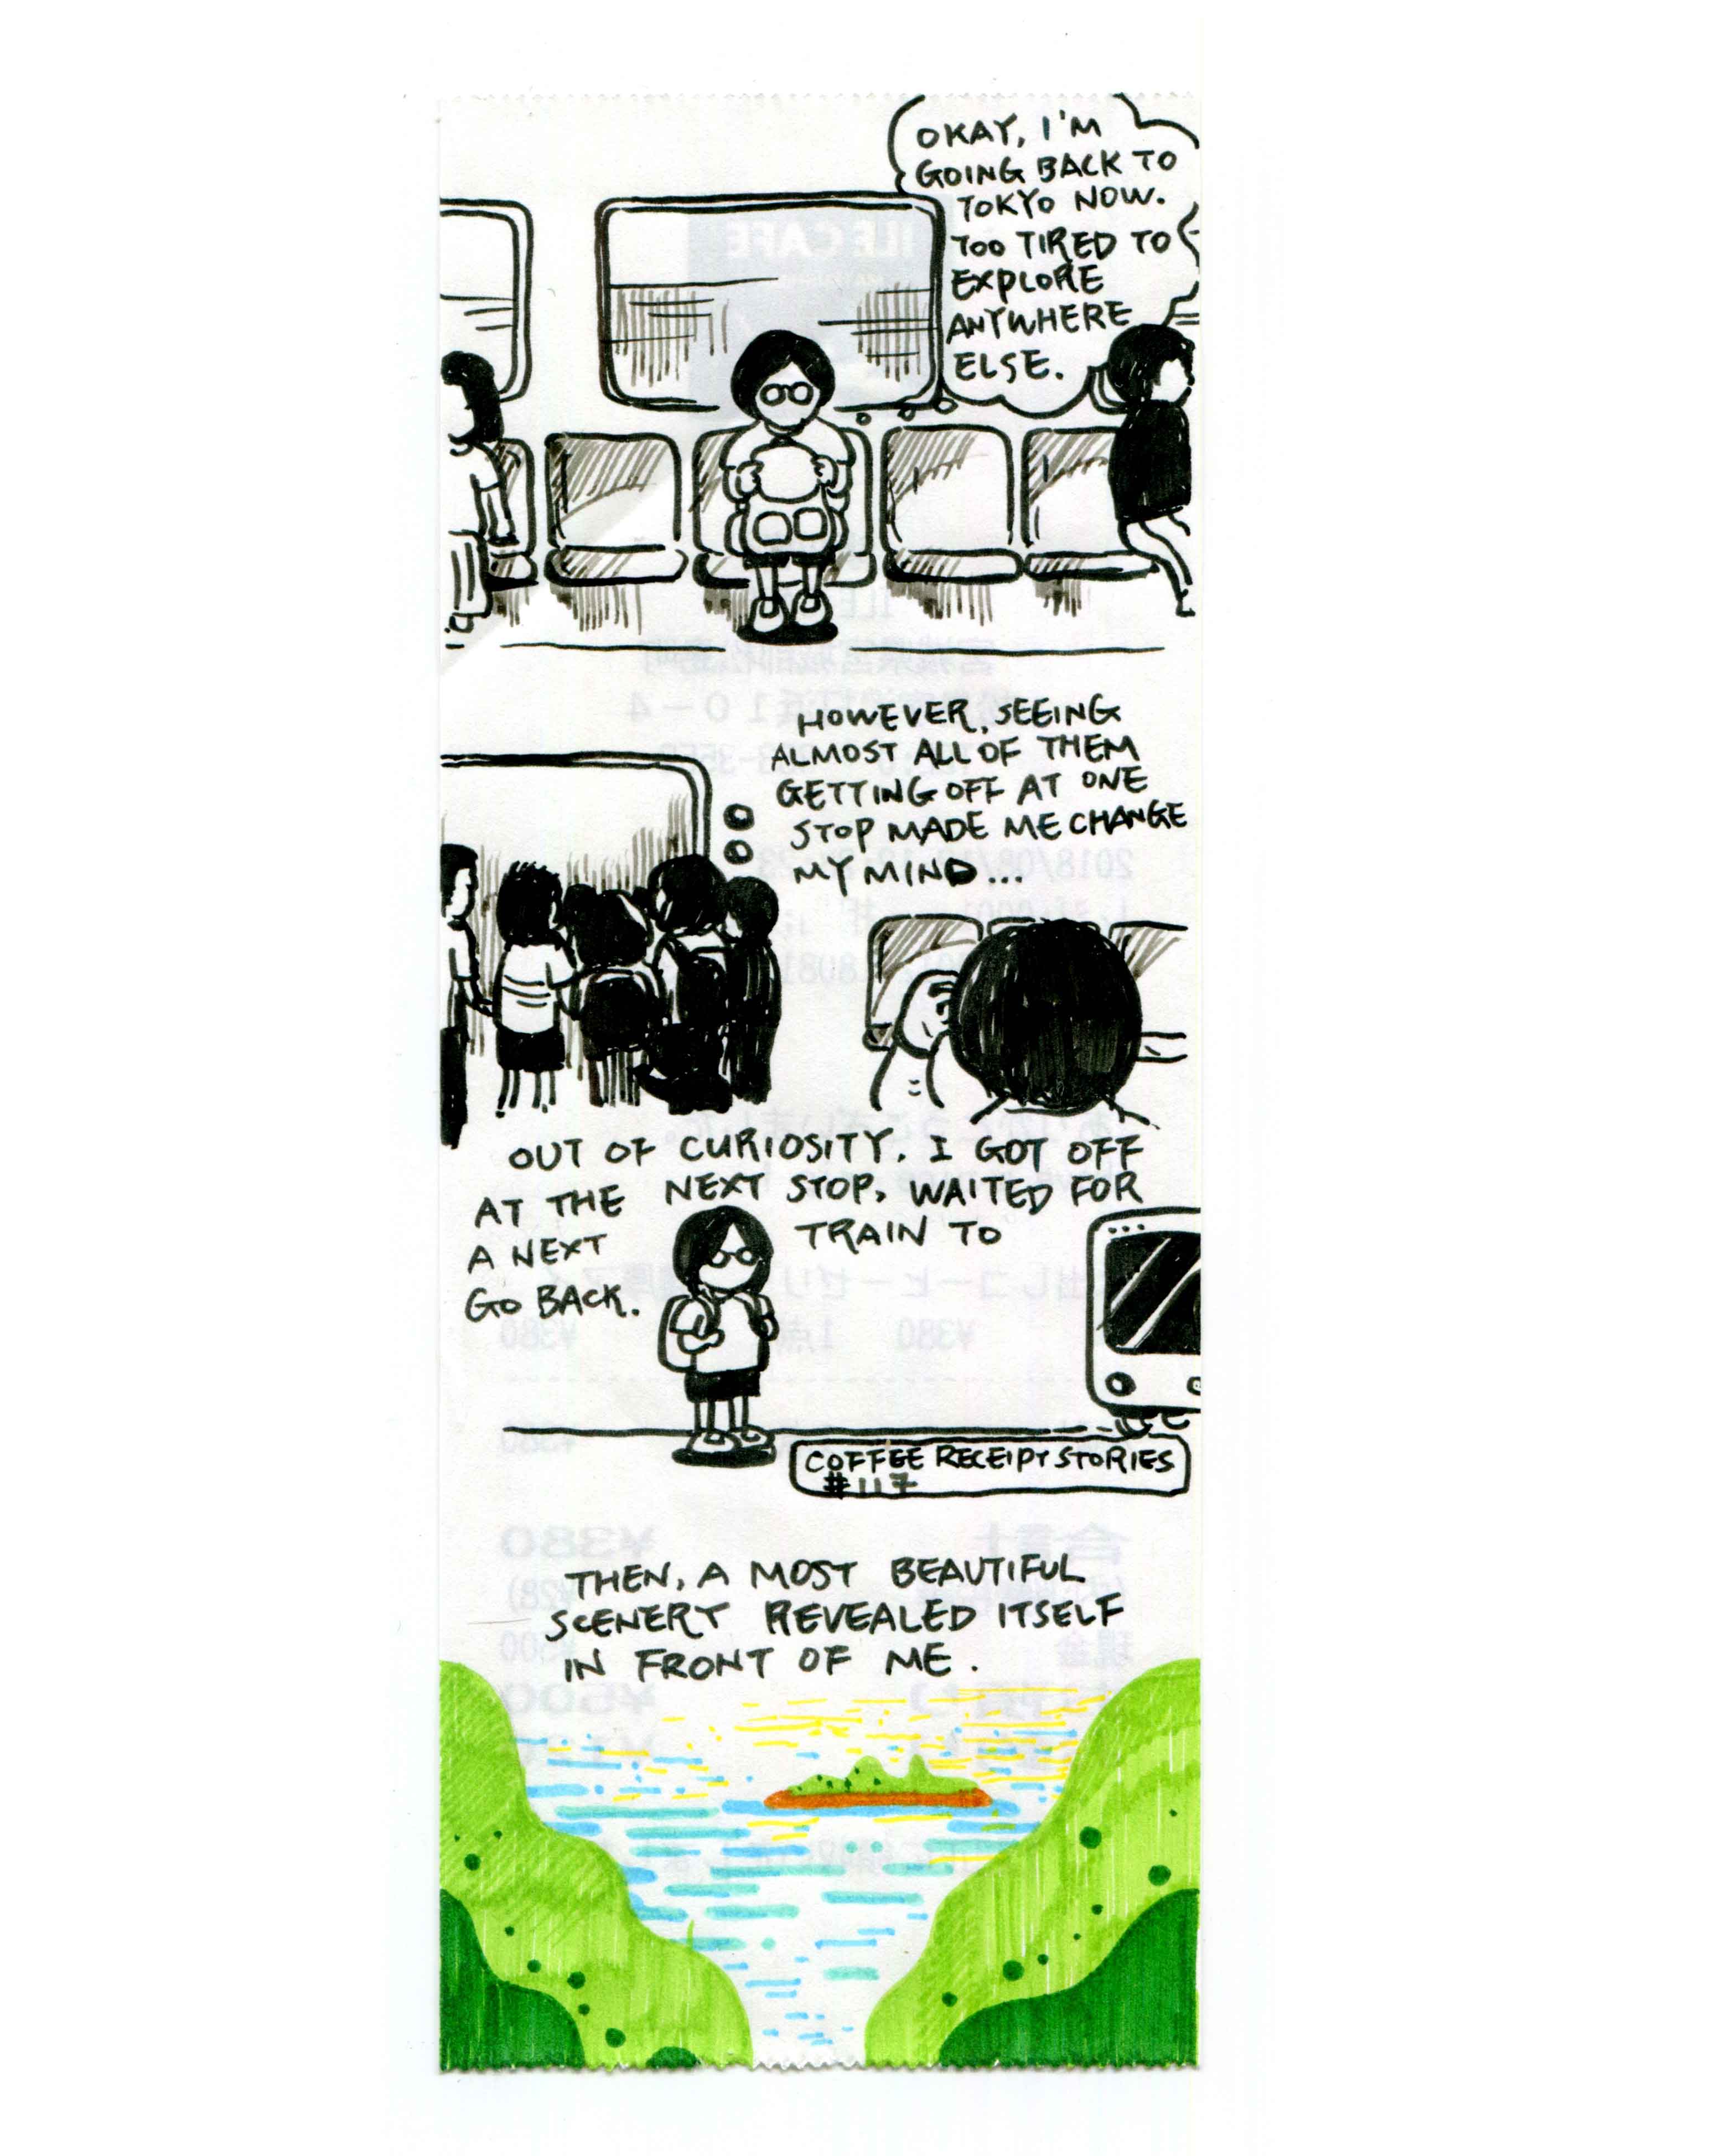 OKAY, I'M
GOING BACK TO
TOKYO NOW.
TOO TIRED TO
EXPLORE
ANYWHERE
ELSE.
HOWEVER, SEEING
ALMOST ALL OF THEM
GETTING OFF AT ONE
STOP MADE ME CHANGE
MY MIND...
OUT OF CURIOSITY. I GOT OFF
AT THE NEXT STOP, WAITED FOR
A NEXT TRAIN TO
GO BACK.
COFFEE RECEIPT STORIES
#117
THEN, A MOST BEAUTIFUL
SCENERY REVEALED ITSELF
IN FRONT OF ME.